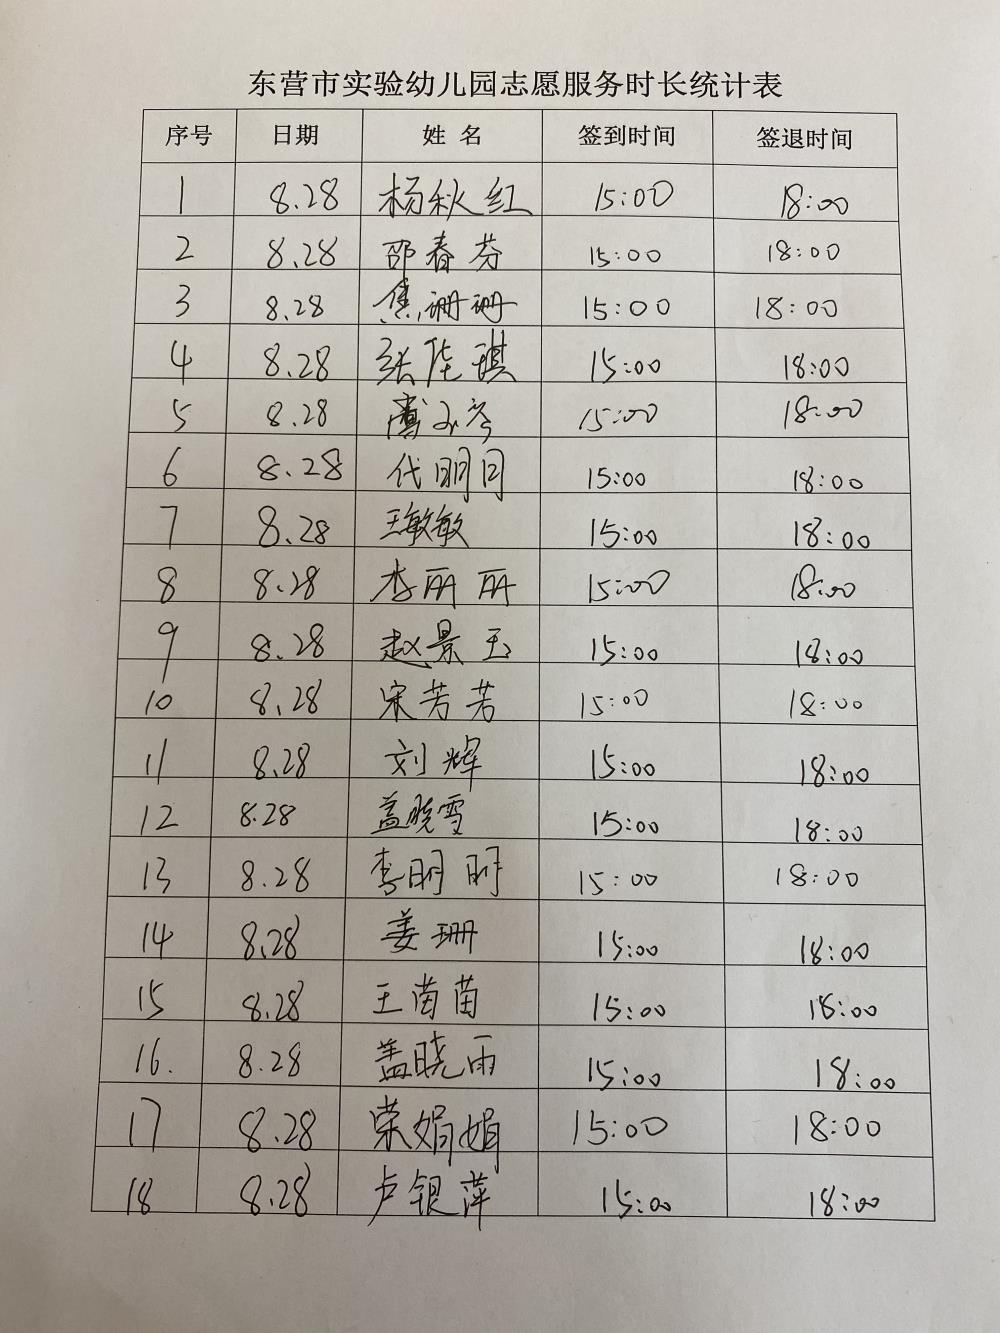 东营市实验幼儿园志愿服务时长统计表
序号 日期 姓 名 签到时间 签退时间
1 8.28 杨秋红 15:00 18:00
2 8.28 邵春芬 15:00 18:00
3 8.28 焦珊珊 15:00 18:00
4 8.28 张佳琪 15:00 18:00
5 8.28 15:00 18:00
6 8.28 代明月 15:00 18:00
7 8.28 王敏敏 15:00 18:00
8 8.28 李丽丽 15:00 18:00
9 8.28 赵景玉 15:00 18:00
10 8.28 宋芳芳 15:00 18:00
11 8.28 刘辉 15:00 18:00
12 8.28 盖晓雪 15:00 18:00
13 8.28 李明明 15:00 18:00
14 8.28 姜珊 15:00 18:00
15 8.28 王苗苗 15:00 18:00
16. 8.28 盖晓雨 15:00 18:00
17 8.28 荣娟娟 15:00 18:00
18 8.28 卢银萍 15:00 18:00